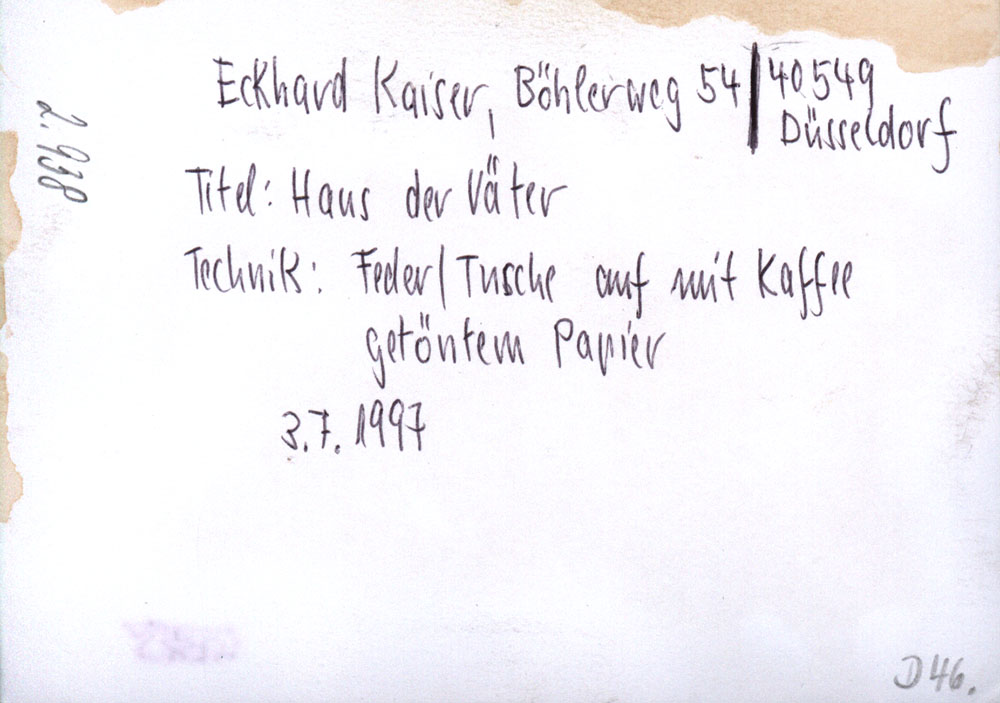 Eckhard Kaiser, Böhlerweg 54 | 40549
Düsseldorf
2.938
Titel: Haus der Väter
Technik: Feder/Tusche auf mit Kaffee
getöntem Papier
3.7.1997
D 46.